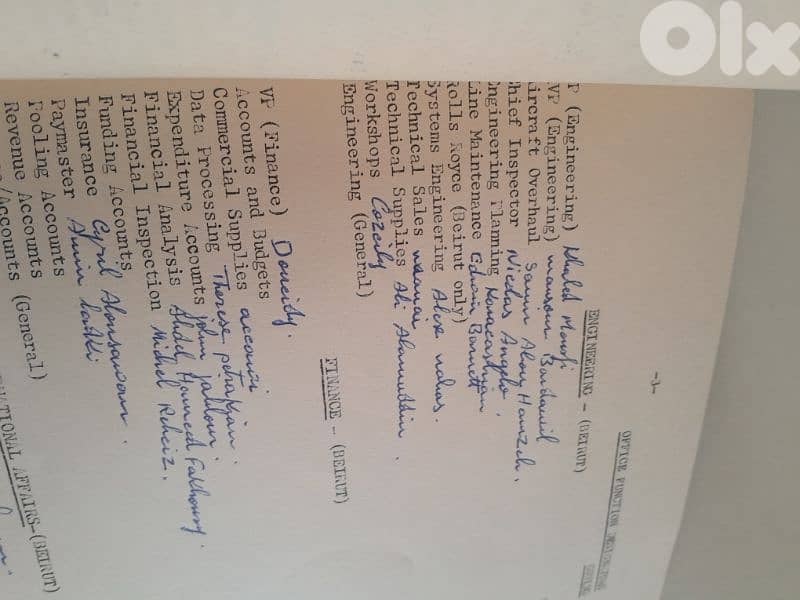 olx
-3-
OFFICE FUNCTION
ENGINEERING - (BEIRUT)
P (Engineering) Khaled
VP (Engineering) mansour Bardawil
ircraft Overhaul Samir Abou Hamzeh.
hief Inspector Nicolas Anghelo.
ngineering Planning
ine Maintenance Edwin Barnett
olls Royce (Beirut only)
ystems Engineering Alex nahas.
Technical Sales
Technical Supplies Ali Alamuddin.
Workshops Cozeily
Engineering (General)
FINANCE - (BEIRUT)
VP (Finance) Doueidy.
Accounts and Budgets
Commercial Supplies accaoui
Data Processing Therese
Expenditure Accounts john jabbour.
Financial Analysis Abdel Hameed Fakhoury.
Financial Inspection Michel Richeiz.
Funding Accounts
Insurance Cyril
Paymaster Amin
Pooling Accounts
Revenue Accounts
/Accounts (General)
NATIONAL AFFAIRS-(BEIRUT)